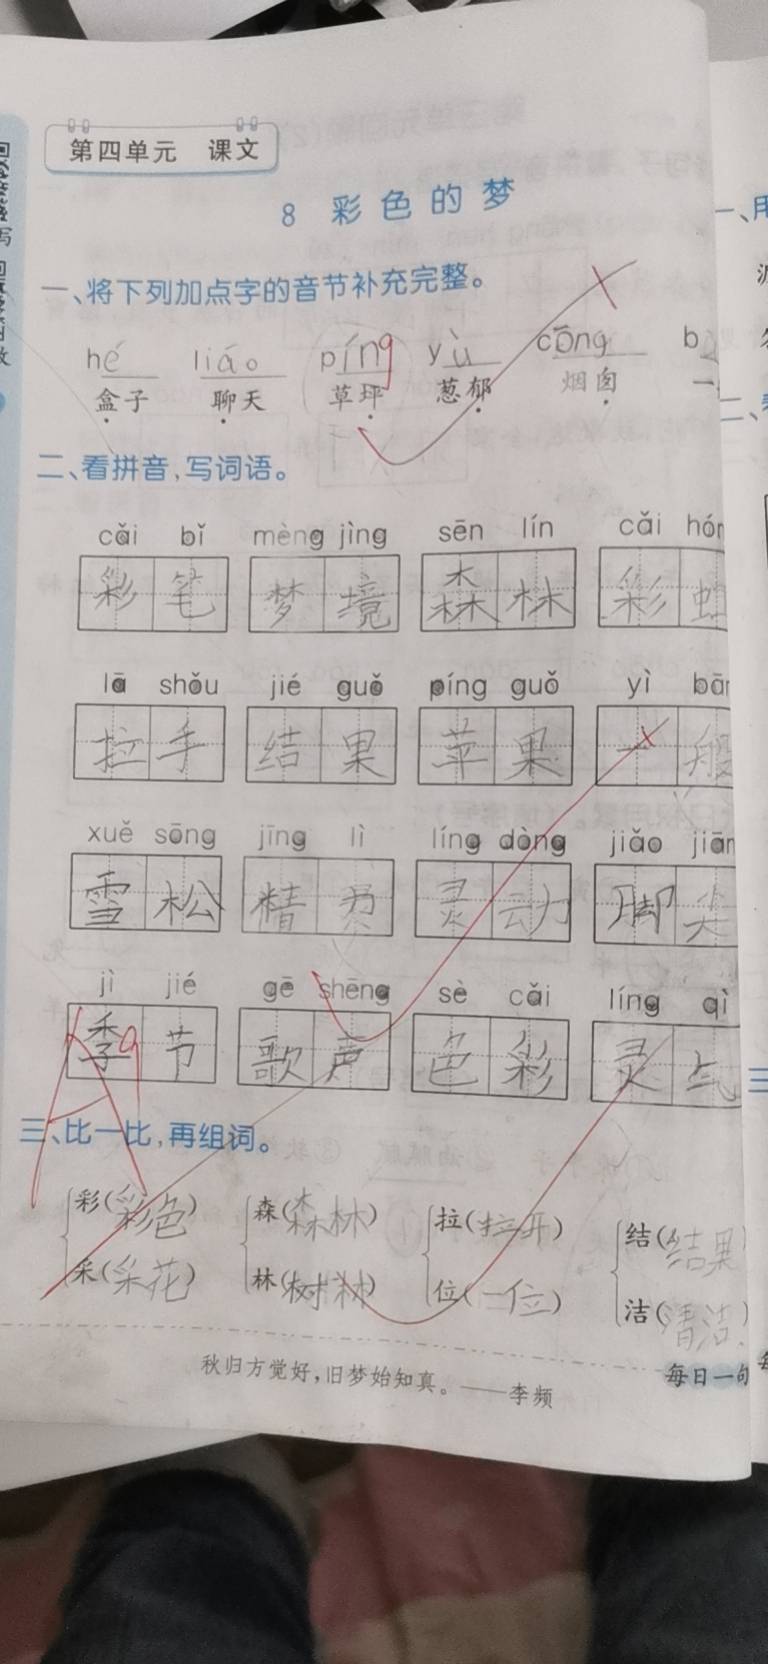 第四单元 课文
8 彩色的梦
一、将下列加点字的音节补充完整。
hé liáo píng yù cōng b
盒子 聊天 草坪 葱郁 烟囱 一
二、看拼音,写词语。
cǎi bǐ mèng jìng sēn lín cǎi hón
彩笔 梦境 森林 彩虹
lā shǒu jié guǒ píng guǒ yì bān
拉手 结果 苹果 一般
xuě sōng jīng lì líng dòng jiǎo jiān
雪松 精灵 灵动 脚尖
jì jié gē shēng sè cǎi líng qì
季节 歌声 色彩 灵气
三、比一比,再组词。
彩(彩色) 森(森林) 拉(拉开) 结(结果)
采(采花) 林(树林) 位(一位) 洁(清洁)
秋归方觉好,旧梦始知真。——李频
每日一句